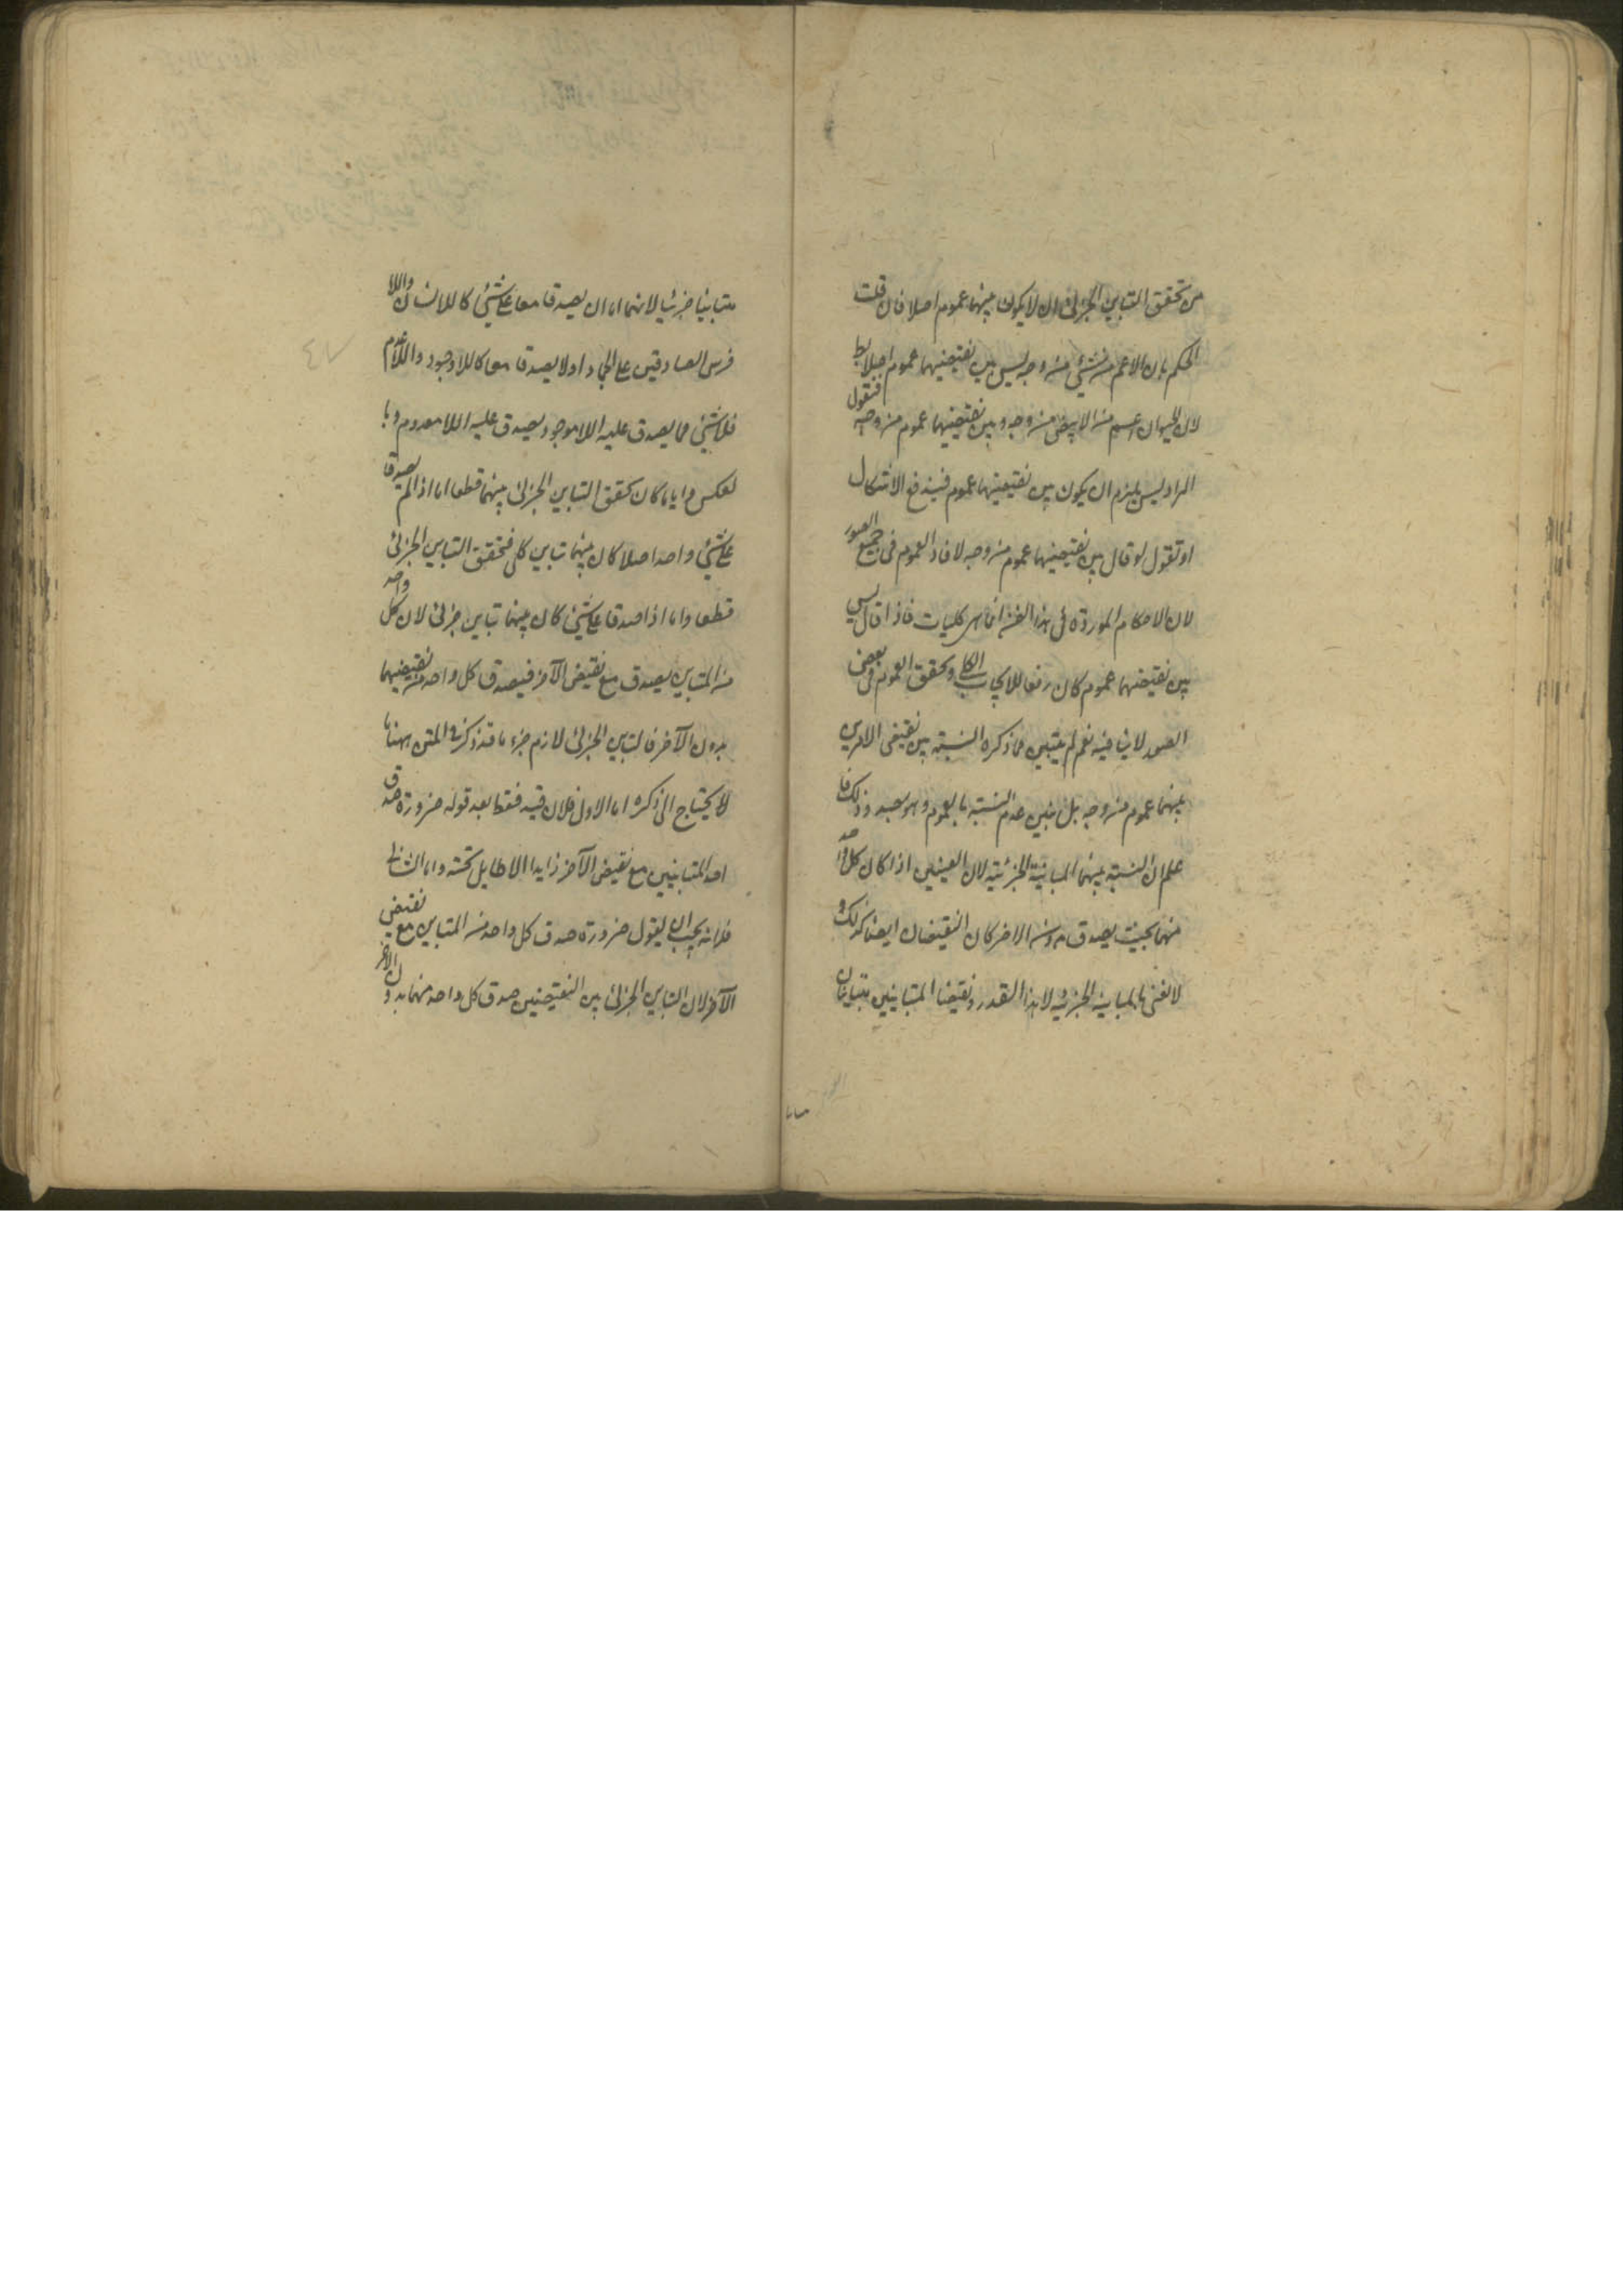 من تحقق التباين الجزئى ان لا يكون بينهما عموم اصلا فان قلت
الحكم بان الاعم من شئ من وجه ليس بين نقيضيهما عموم اصلا بط
لان الحيوان اعم من الابيض من وجه وبين نقيضيهما عموم من وجه فنقول
المراد ليس يلزم ان يكون بين نقيضيهما عموم فيندفع الاشكال
او نقول لو قال بين نقيضيهما عموم من وجه لافاد العموم فى جميع الصور
لان الاحكام الموردة فى هذا الفن انما هى كليات فاذا قال ليس
بين نقيضيهما عموم كان رفعا للايجاب الكلى وتحقق العموم فى بعض
الصور لا ينافيه نعم لم يتبين مما ذكره النسبة بين نقيضى الامرين
بينهما عموم من وجه بل تبين عدم النسبة بالعموم وهو بصدد ذلك فا
علم ان النسبة بينهما المباينة الجزئية لان العينين اذا كان كل واحد
منهما بحيث يصدق بدون الاخر كان النقيضان ايضا كذلك و
لا نعنى بالمباينة الجزئية الا هذا القدر ونقيضا المتباينين متباينان
متباينا جزئيا لانهما اما ان يصدقا معا على شئ كاللاانسان واللا
فرس الصادقين على الجماد او لا يصدقا معا كاللاوجود واللاعدم
فلا شئ مما يصدق عليه اللاموجود يصدق عليه اللامعدوم وبا
لعكس وايا ما كان تحقق التباين الجزئى بينهما قطعا اما اذا لم يصدقا
على شئ واحد اصلا كان بينهما تباين كلى فتحقق التباين الجزئى
قطعا واما اذا صدقا على شئ كان بينهما تباين جزئى لان كل واحد
من المتباينين يصدق مع نقيض الآخر فيصدق كل واحد من نقيضيهما
بدون الآخر فالتباين الجزئى لازم جزما قد ذكر فى المتن ههنا ما
لا يحتاج الى ذكره اما الاول فلان قيد فقط بعد قوله ضرورة صدق
احد المتباينين مع نقيض الآخر زايدا لا طايل تحته واما الثانى
فلانه يجب ان يقول ضرورة صدق كل واحد من المتباينين مع نقيض
الآخر لان التباين الجزئى بين النقيضين صدق كل واحد منهما بدون الاخر